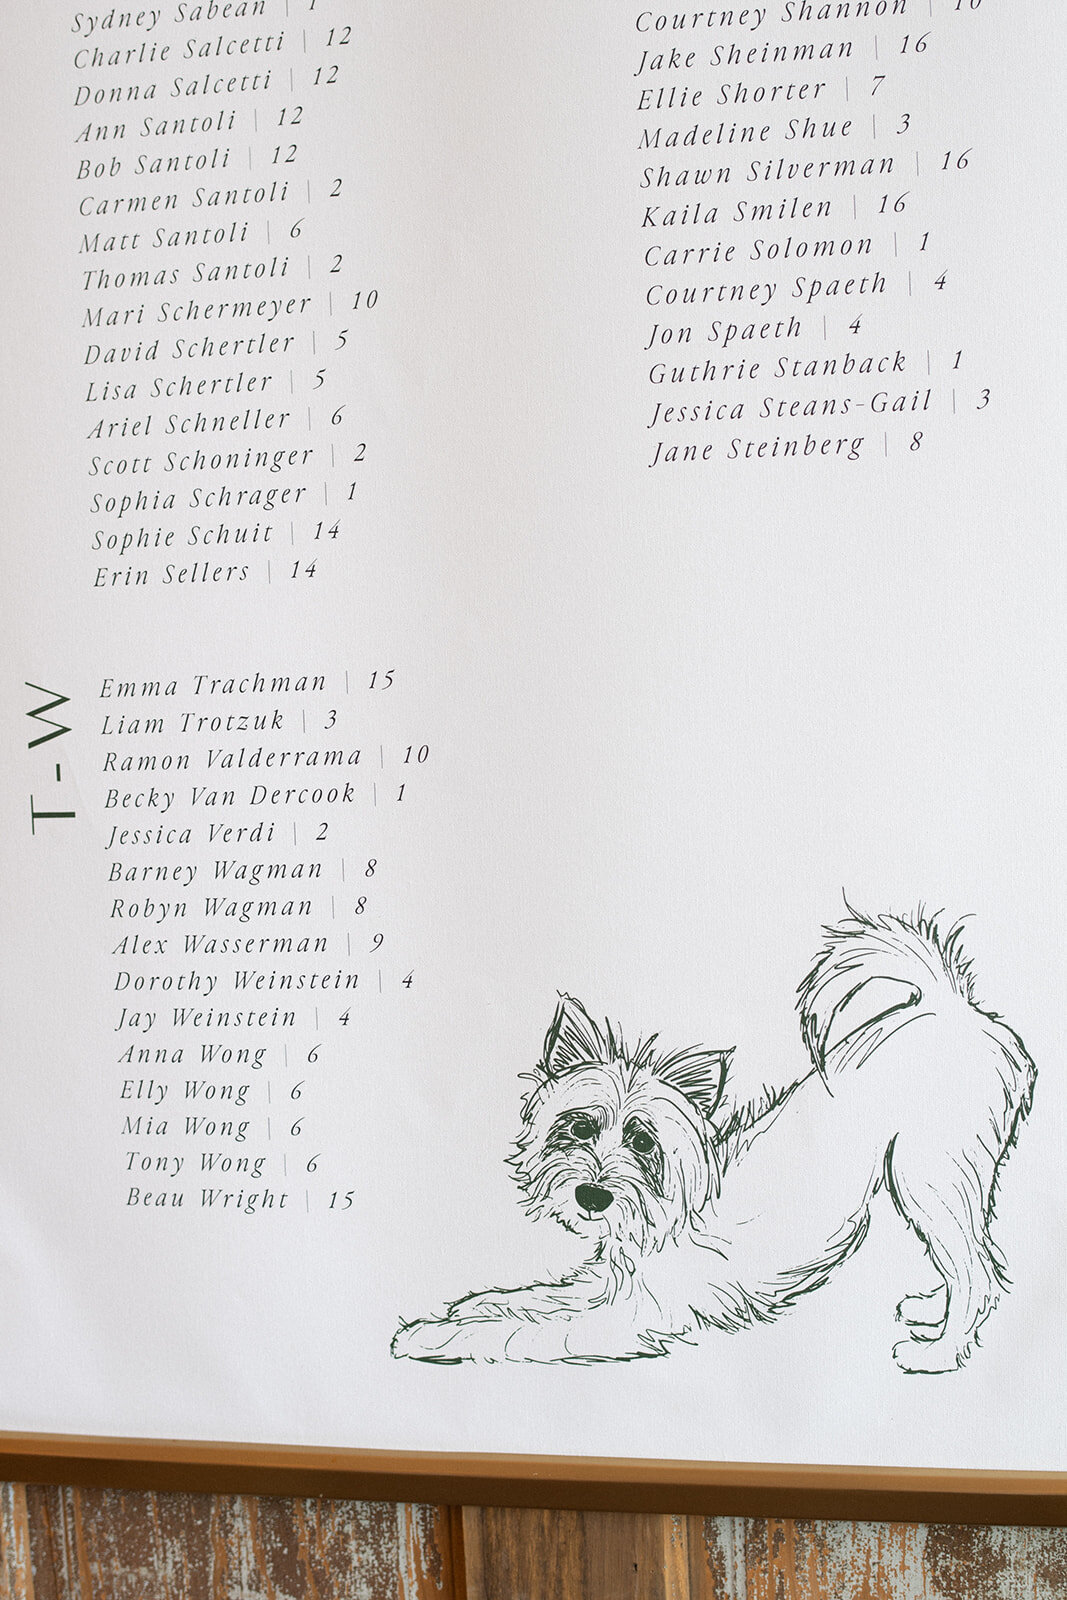 Sydney Sabean | 1
Charlie Salcetti | 12
Donna Salcetti | 12
Ann Santoli | 12
Bob Santoli | 12
Carmen Santoli | 2
Matt Santoli | 6
Thomas Santoli | 2
Mari Schermeyer | 10
David Schertler | 5
Lisa Schertler | 5
Ariel Schneller | 6
Scott Schoninger | 2
Sophia Schrager | 1
Sophie Schuit | 14
Erin Sellers | 14
Courtney Shannon | 10
Jake Sheinman | 16
Ellie Shorter | 7
Madeline Shue | 3
Shawn Silverman | 16
Kaila Smilen | 16
Carrie Solomon | 1
Courtney Spaeth | 4
Jon Spaeth | 4
Guthrie Stanback | 1
Jessica Steans-Gail | 3
Jane Steinberg | 8
T-W
Emma Trachman | 15
Liam Trotzuk | 3
Ramon Valderrama | 10
Becky Van Dercook | 1
Jessica Verdi | 2
Barney Wagman | 8
Robyn Wagman | 8
Alex Wasserman | 9
Dorothy Weinstein | 4
Jay Weinstein | 4
Anna Wong | 6
Elly Wong | 6
Mia Wong | 6
Tony Wong | 6
Beau Wright | 15